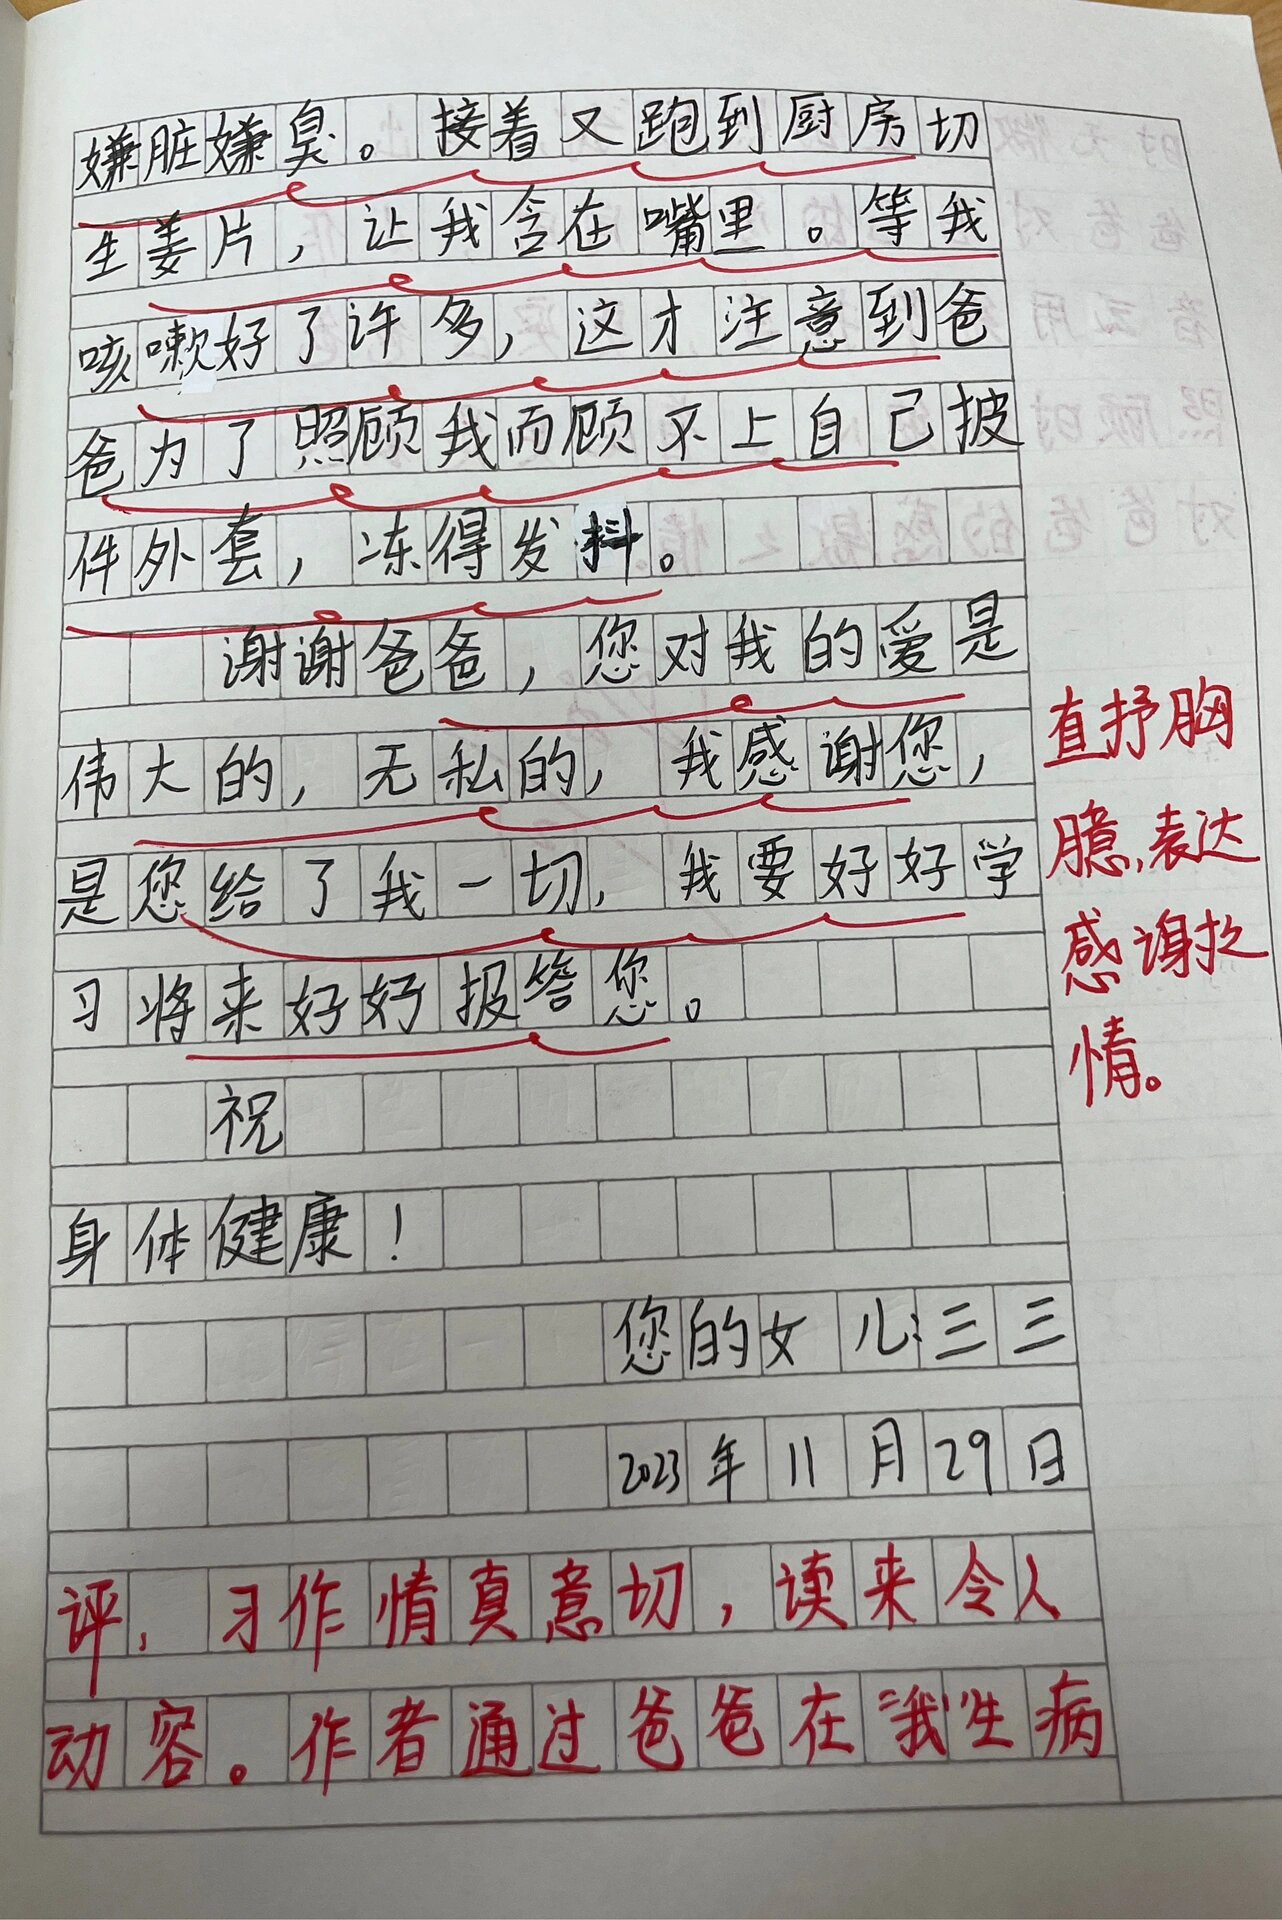 嫌脏嫌臭。接着又跑到厨房切
生姜片，让我含在嘴里。等我
咳嗽好了许多，这才注意到爸
爸为了照顾我而顾不上自己披
件外套，冻得发抖。
谢谢爸爸，您对我的爱是
伟大的，无私的，我感谢您，
是您给了我一切，我要好好学
习将来好好报答您。
祝
身体健康！
您的女儿：三三
2023年11月29日
直抒胸
臆，表达
感谢之
情。
评，习作情真意切，读来令人
动容。作者通过爸爸在“我”生病